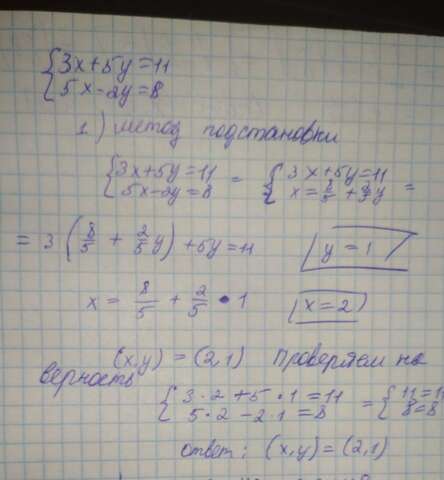 {3x+5y=11
{5x-2y=8
1) метод подстановки
{3x+5y=11 = {3x+5y=11 =
{5x-2y=8 {x=8/5+2/5y
= 3(8/5+2/5y)+5y=11 y=1
x=8/5+2/5•1 x=2
(x,y)=(2,1) Проверяем на
верность
{3·2+5·1=11 = {11=1
{5·2-2·1=8 {8=8
ответ: (x,y)=(2,1)